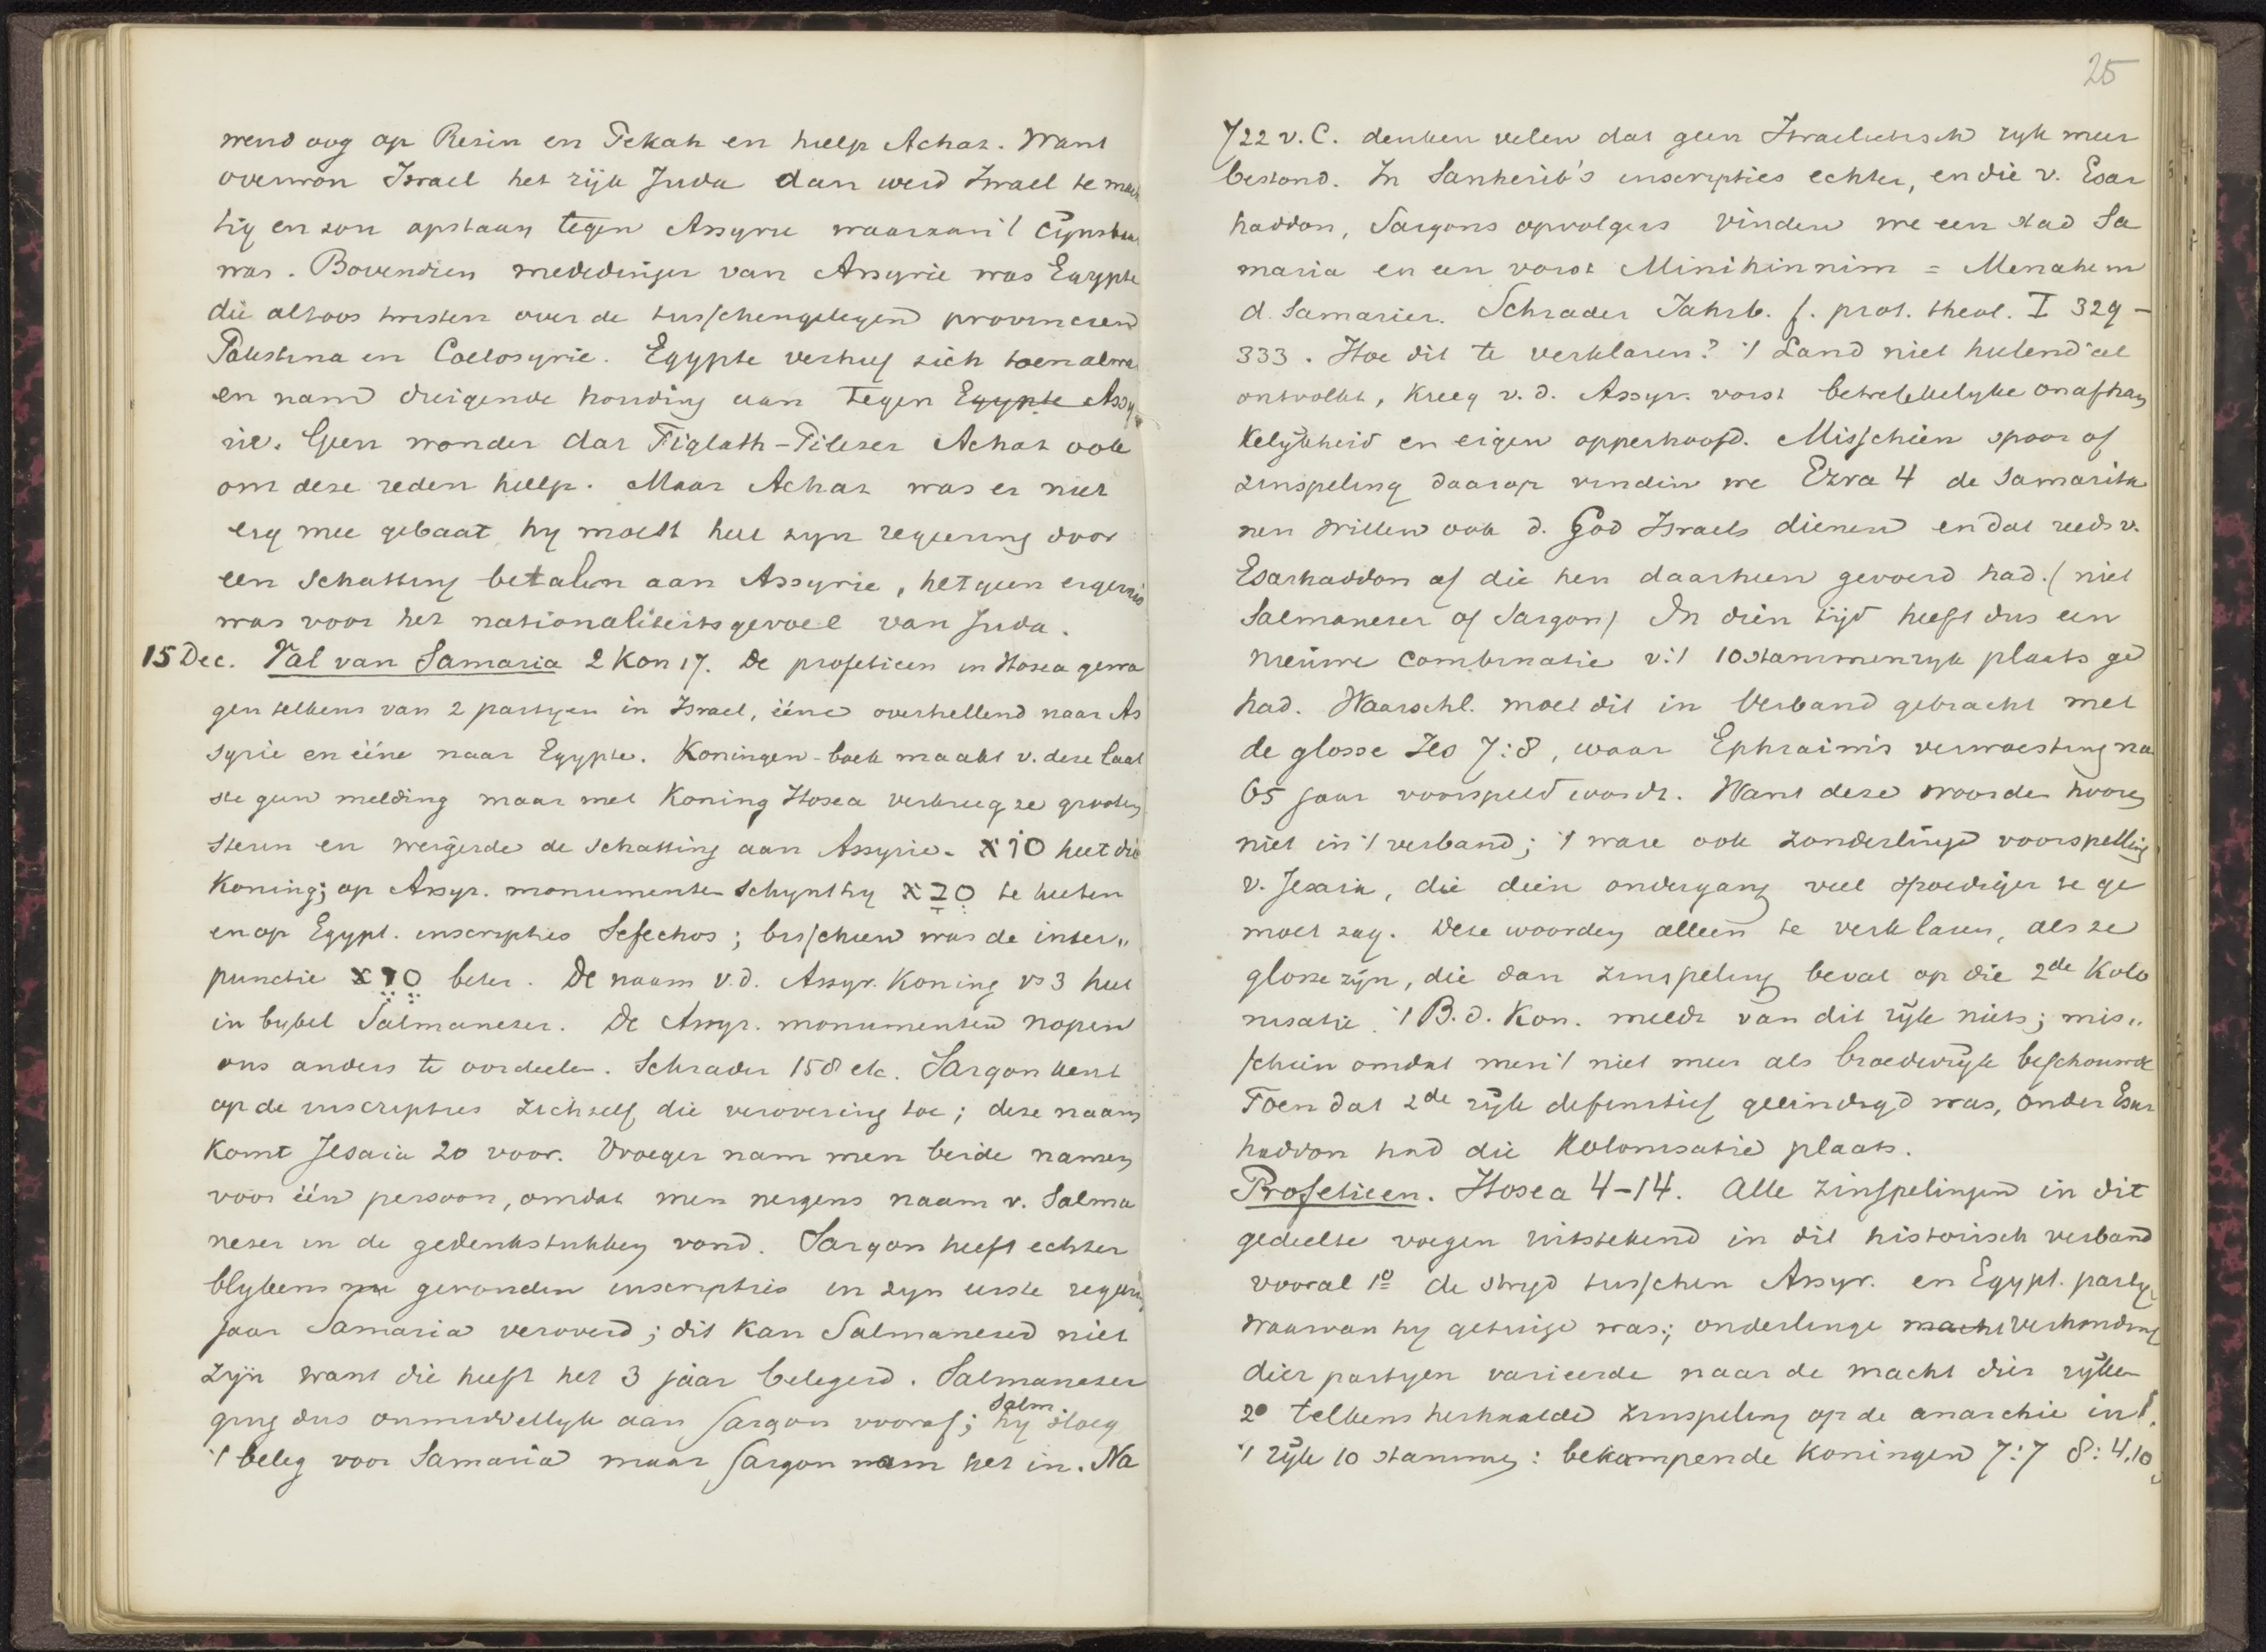 wend oog op Resin en Pekah en hielp Achas. Want
overwon Israel het rijk Juda dan werd Israel te mach
tig en zou opstaan tegen Assyrie waaraan 't cijnsbaar
was. Bovendien mededinger van Assyrie was Egypte
die altoos twisten over de tusschengelegend provincien
Palestina en Coelosyrie. Egypte verhief zich toen alwr
en nam dreigende houding aan tegen Egypte Assy
rie. Geen wonder dat Tiglath-Pileser Achas ook
om deze reden hielp. Maar Achas was er niet
erg mee gebaat hy moest heel zyn regeering door
een schatting betalen aan Assyrie, hetgeen ergernis
was voor het nationaliteitsgevoel van Juda.
15 Dec. Val van Samaria 2 Kon 17. De profetieen in Hosea gewa
gen telkens van 2 partyen in Israel, ééne overhellend naar As
syrie en ééne naar Egypte. Koningen-boek maakt v. deze laat
ste geen melding maar met Koning Hosea verkreeg ze grooten
steun en weigerde de schatting aan Assyrie. אוס heet die
Koning; op Assyr. monumenten schynt hy te heeten
en op Egypt. inscripties Sefechos; misschien was de inter„
punctie beter. De naam v.d. Assyr. Koning vs 3 heet
in bybel Salmaneser. De Assyr. monumenten nopen
ons anders te oordeelen. Schrader 158 etc. Sargon kent
op de inscripties zichzelf die verovering toe; deze naam
komt Jesaia 20 voor. Vroeger nam men beide namen
voor één persoon, omdat men nergens naam v. Salma
neser in de gedenkstukken vond. Sargon heeft echter
blykens nu gevonden inscripties in zyn eerste regeerings
jaar Samaria veroverd; dit kan Salmaneser niet
zijn want die heeft het 3 jaar belegerd. Salmaneser
ging dus onmiddellyk aan Sargon vooraf; hy Salm. sloeg
't beleg voor Samaria maar Sargon nam het in. Na
25
722 v. C. denken velen dat geen Israelietisch ryk meer
bestond. In Sanherib's inscripties echter, en die v. Esar
haddon, Sargons opvolgers vinden we een stad Sa
maria en een vorst Minihinnim = Menahem
d. Samarier. Schrader Jahrb. f. prot. theol. I 329 -
333. Hoe dit te verklaren? 't Land niet heelend'al
ontvolkt, kreeg v. d. Assyr. vorst betrekkelyke onafhan
kelykheid en eigen opperhoofd. Misschien spoor of
zinspeling daarop vinden we Ezra 4 de Samarita
nen willen ook d. God Israels dienen en dat reeds v.
Esarhaddon af die hen daarheen gevoerd had. (niet
Salmaneser of Sargon) In dien tijd heeft dus een
nieuwe combinatie v. 't 10 stammenryk plaats ge
had. Waarschl. moet dit in verband gebracht met
de glosse Jes 7:8, waar Ephraim's verwoesting na
65 jaar voorspeld wordt. Want deze woorden hooren
niet in 't verband; 't ware ook zonderlinge voorspelling
v. Jesaia, die dien ondergang veel spoediger te ge
moet zag. Deze woorden alleen te verklaren, als ze
glosse zijn, die dan zinspeling bevat op die 2de Kolo
nisatie. 't B. d. Kon. meldt van dit rijk niets; mis„
schien omdat men 't niet meer als broederrijk beschouwde
Toen dat 2de rijk definitief geeindigd was, onder Esar
haddon had die Kolonisatie plaats.
Profetieen. Hosea 4-14. Alle zinspelingen in dit
gedeelte voegen uitstekend in dit historisch verband
vooral 1o de stryd tusschen Assyr. en Egypt. party
waarvan hy getuige was; onderlinge macht verhouding
dier partyen varieerde naar de macht dier ryken
2o telkens herhaalde zinspeling op de anarchie in
't ryk 10 stammen: bekampende Koningen 7:7 8:4.10